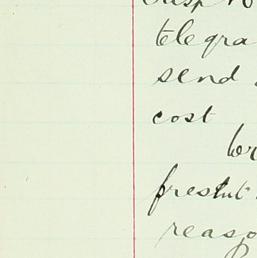 telegra
send
cost
present
reaso